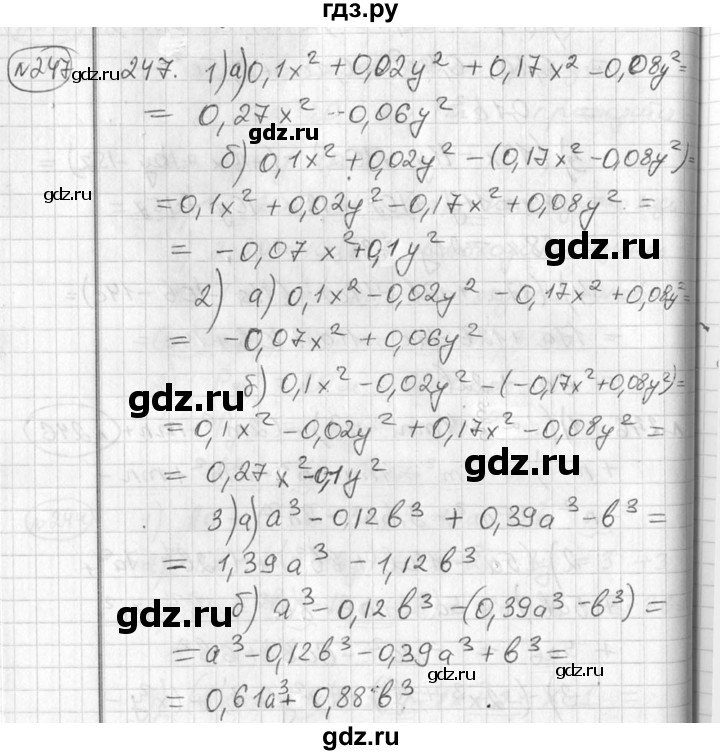 гдз.ру
№247 247. 1) а) 0,1x² + 0,02y² + 0,17x² - 0,08y² =
= 0,27x² - 0,06y²
гдз.ру
б) 0,1x² + 0,02y² - (0,17x² - 0,08y²) =
gdz.ru
= 0,1x² + 0,02y² - 0,17x² + 0,08y² =
= -0,07x² + 0,1y²
gdz.ru
2) а) 0,1x² - 0,02y² - 0,17x² + 0,08y² =
= -0,07x² + 0,06y²
б) 0,1x² - 0,02y² - (-0,17x² + 0,08y²) =
gdz.ru
= 0,1x² - 0,02y² + 0,17x² - 0,08y² =
= 0,27x² - 0,1y²
gdz.ru
3) а) a³ - 0,12b³ + 0,39a³ - b³ =
= 1,39a³ - 1,12b³
б) a³ - 0,12b³ - (0,39a³ - b³) =
gdz.ru
= a³ - 0,12b³ - 0,39a³ + b³ =
gdz.ru
gdz.ru
= 0,61a³ + 0,88b³
gdz.ru